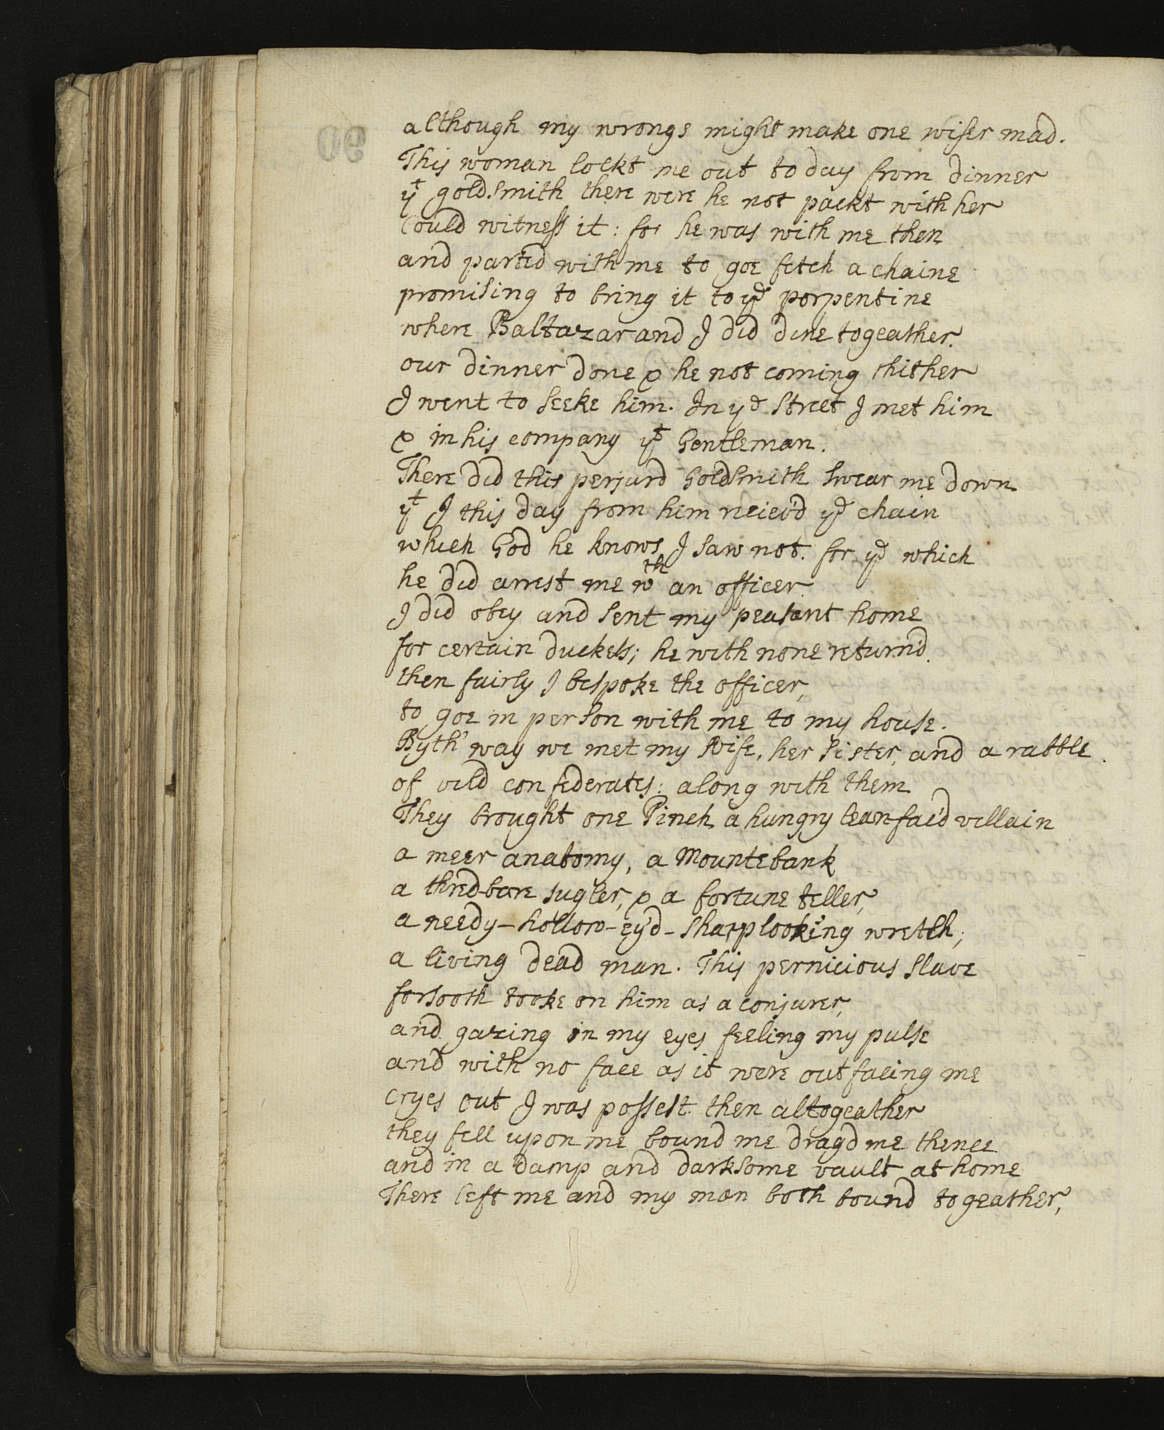 although my wrongs might make one wiser mad.
This woman lockt me out to day from dinner
yt goldsmith there were he not packt with her
Could witness it: for he was with me then
and parted with me to goe fetch a chaine
promising to bring it to ye porpentine
where Baltazar and I did dine togeather.
our dinner done & he not coming thither
I went to seeke him. In ye street I met him
& in his company yt Gentleman.
There did this perjurd Goldsmith swear me down
yt I this day from him receiv'd ye chain
which God he knows I saw not. for ye which
he did arrest me wth an officer.
I did obey and sent my peasant home
for certain duckets; he with none return'd.
then fairly I bespoke the officer,
to goe in person with me to my house.
Byth' way we met my wife, her sister, and a rabble.
of vild confederates: along with them
They brought one Pinch a hungry lean-fac'd villain
a meer anatomy, a Mountebank
a thredbare jugler, & a fortune teller,
a needy-hollow-ey'd-sharplooking wretch;
a living dead man. This pernicious slave
forsooth tooke on him as a conjurer,
and gazing in my eyes feeling my pulse
and with no face as it were outfacing me
cryes out I was possest. then altogeather
they fell upon me bound me dragd me thence
and in a damp and darksome vault at home
There left me and my man both bound togeather,
90